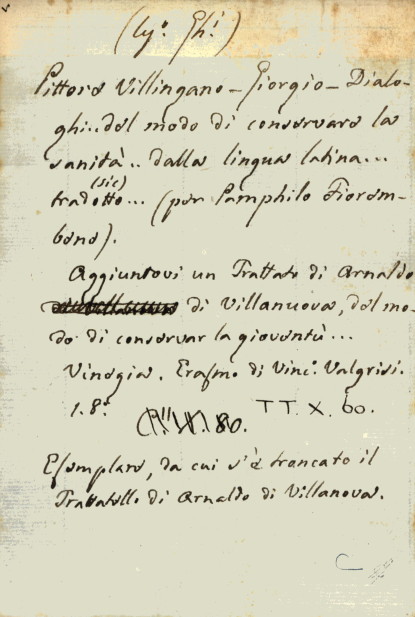 Pittore Villingano - Giorgio - Dialo-
ghi.. del modo di conservare la
sanità.. dalla lingua latina...
(sic)
tradotto... (per Pamphilo Fiorem-
bene).
Aggiuntovi un Trattato di Arnaldo
di Villanuova, del mo-
do di conservar la gioventù...
Vinegia. Erasmo di Vinc.º Valgrisi.
1.8º
80. TT. X. 60.
Esemplare, da cui s'è troncato il
Trattatello di Arnaldo di Villanova.